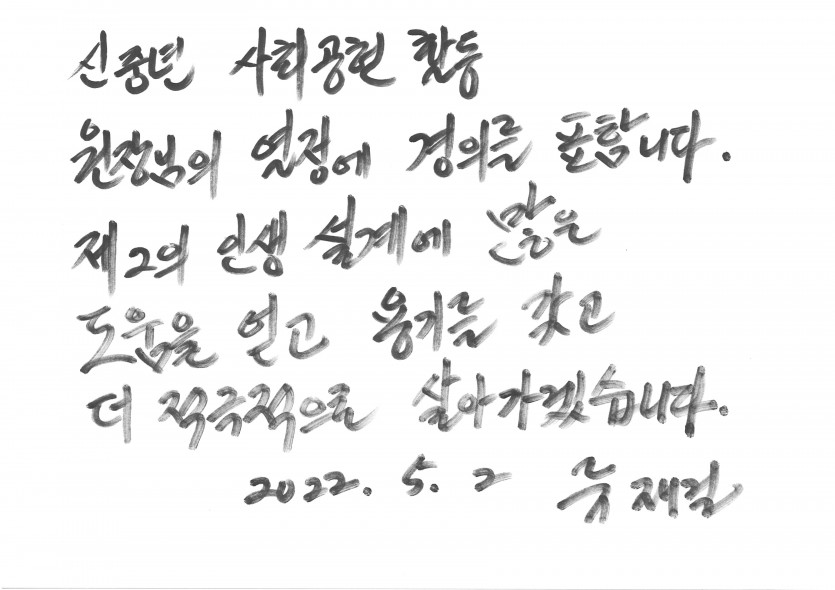 신중년 사회공헌 활동
원장님의 열정에 경의를 표합니다.
제2의 인생 설계에 많은
도움을 얻고 용기를 갖고
더 적극적으로 살아가겠습니다.
2022. 5. 2 유재길